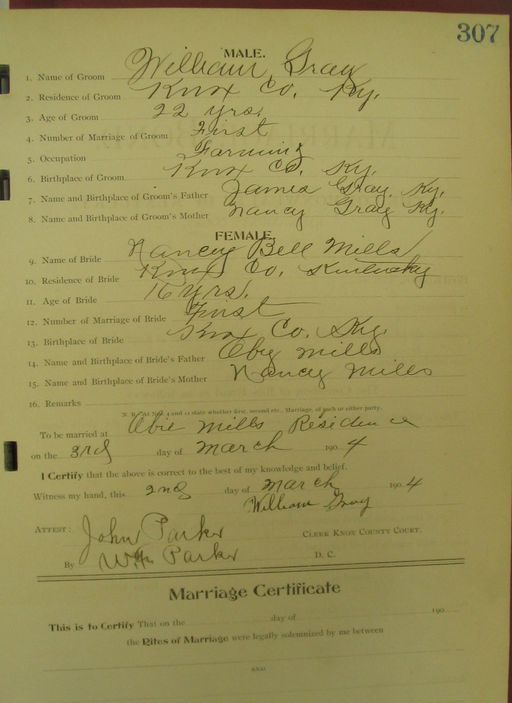 307
MALE.
1. Name of Groom William Gray
2. Residence of Groom Knox Co. Ky.
3. Age of Groom 22 yrs.
4. Number of Marriage of Groom First
5. Occupation Farming
6. Birthplace of Groom Knox Co. Ky.
7. Name and Birthplace of Groom's Father James Gray, Ky.
8. Name and Birthplace of Groom's Mother Nancy Gray Ky.
FEMALE.
9. Name of Bride Nancy Bell Mills
10. Residence of Bride Knox Co. Kentucky
11. Age of Bride 16 yrs.
12. Number of Marriage of Bride First
13. Birthplace of Bride Knox Co. Ky.
14. Name and Birthplace of Bride's Father Oby Mills
15. Name and Birthplace of Bride's Mother Nancy Mills
16. Remarks
N. B. At Nos. 4 and 12 state whether first, second etc., Marriage, of each or either party.
To be married at Obie Mills Residence
on the 3rd day of March 1904
I Certify that the above is correct to the best of my knowledge and belief.
Witness my hand, this 2nd day of March 1904
William Gray
ATTEST: John Parker CLERK KNOX COUNTY COURT.
By Wm Parker D. C.
Marriage Certificate
This is to Certify That on the day of 190
the Rites of Marriage were legally solemnized by me between
and